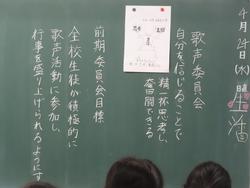 4月24日(水)
生活
歌声委員会
自分を信じることで
精一杯思考し、
奮闘できる
前期委員会目標
全校生徒が積極的に
歌声活動に参加し、
行事を盛り上げられるようにす